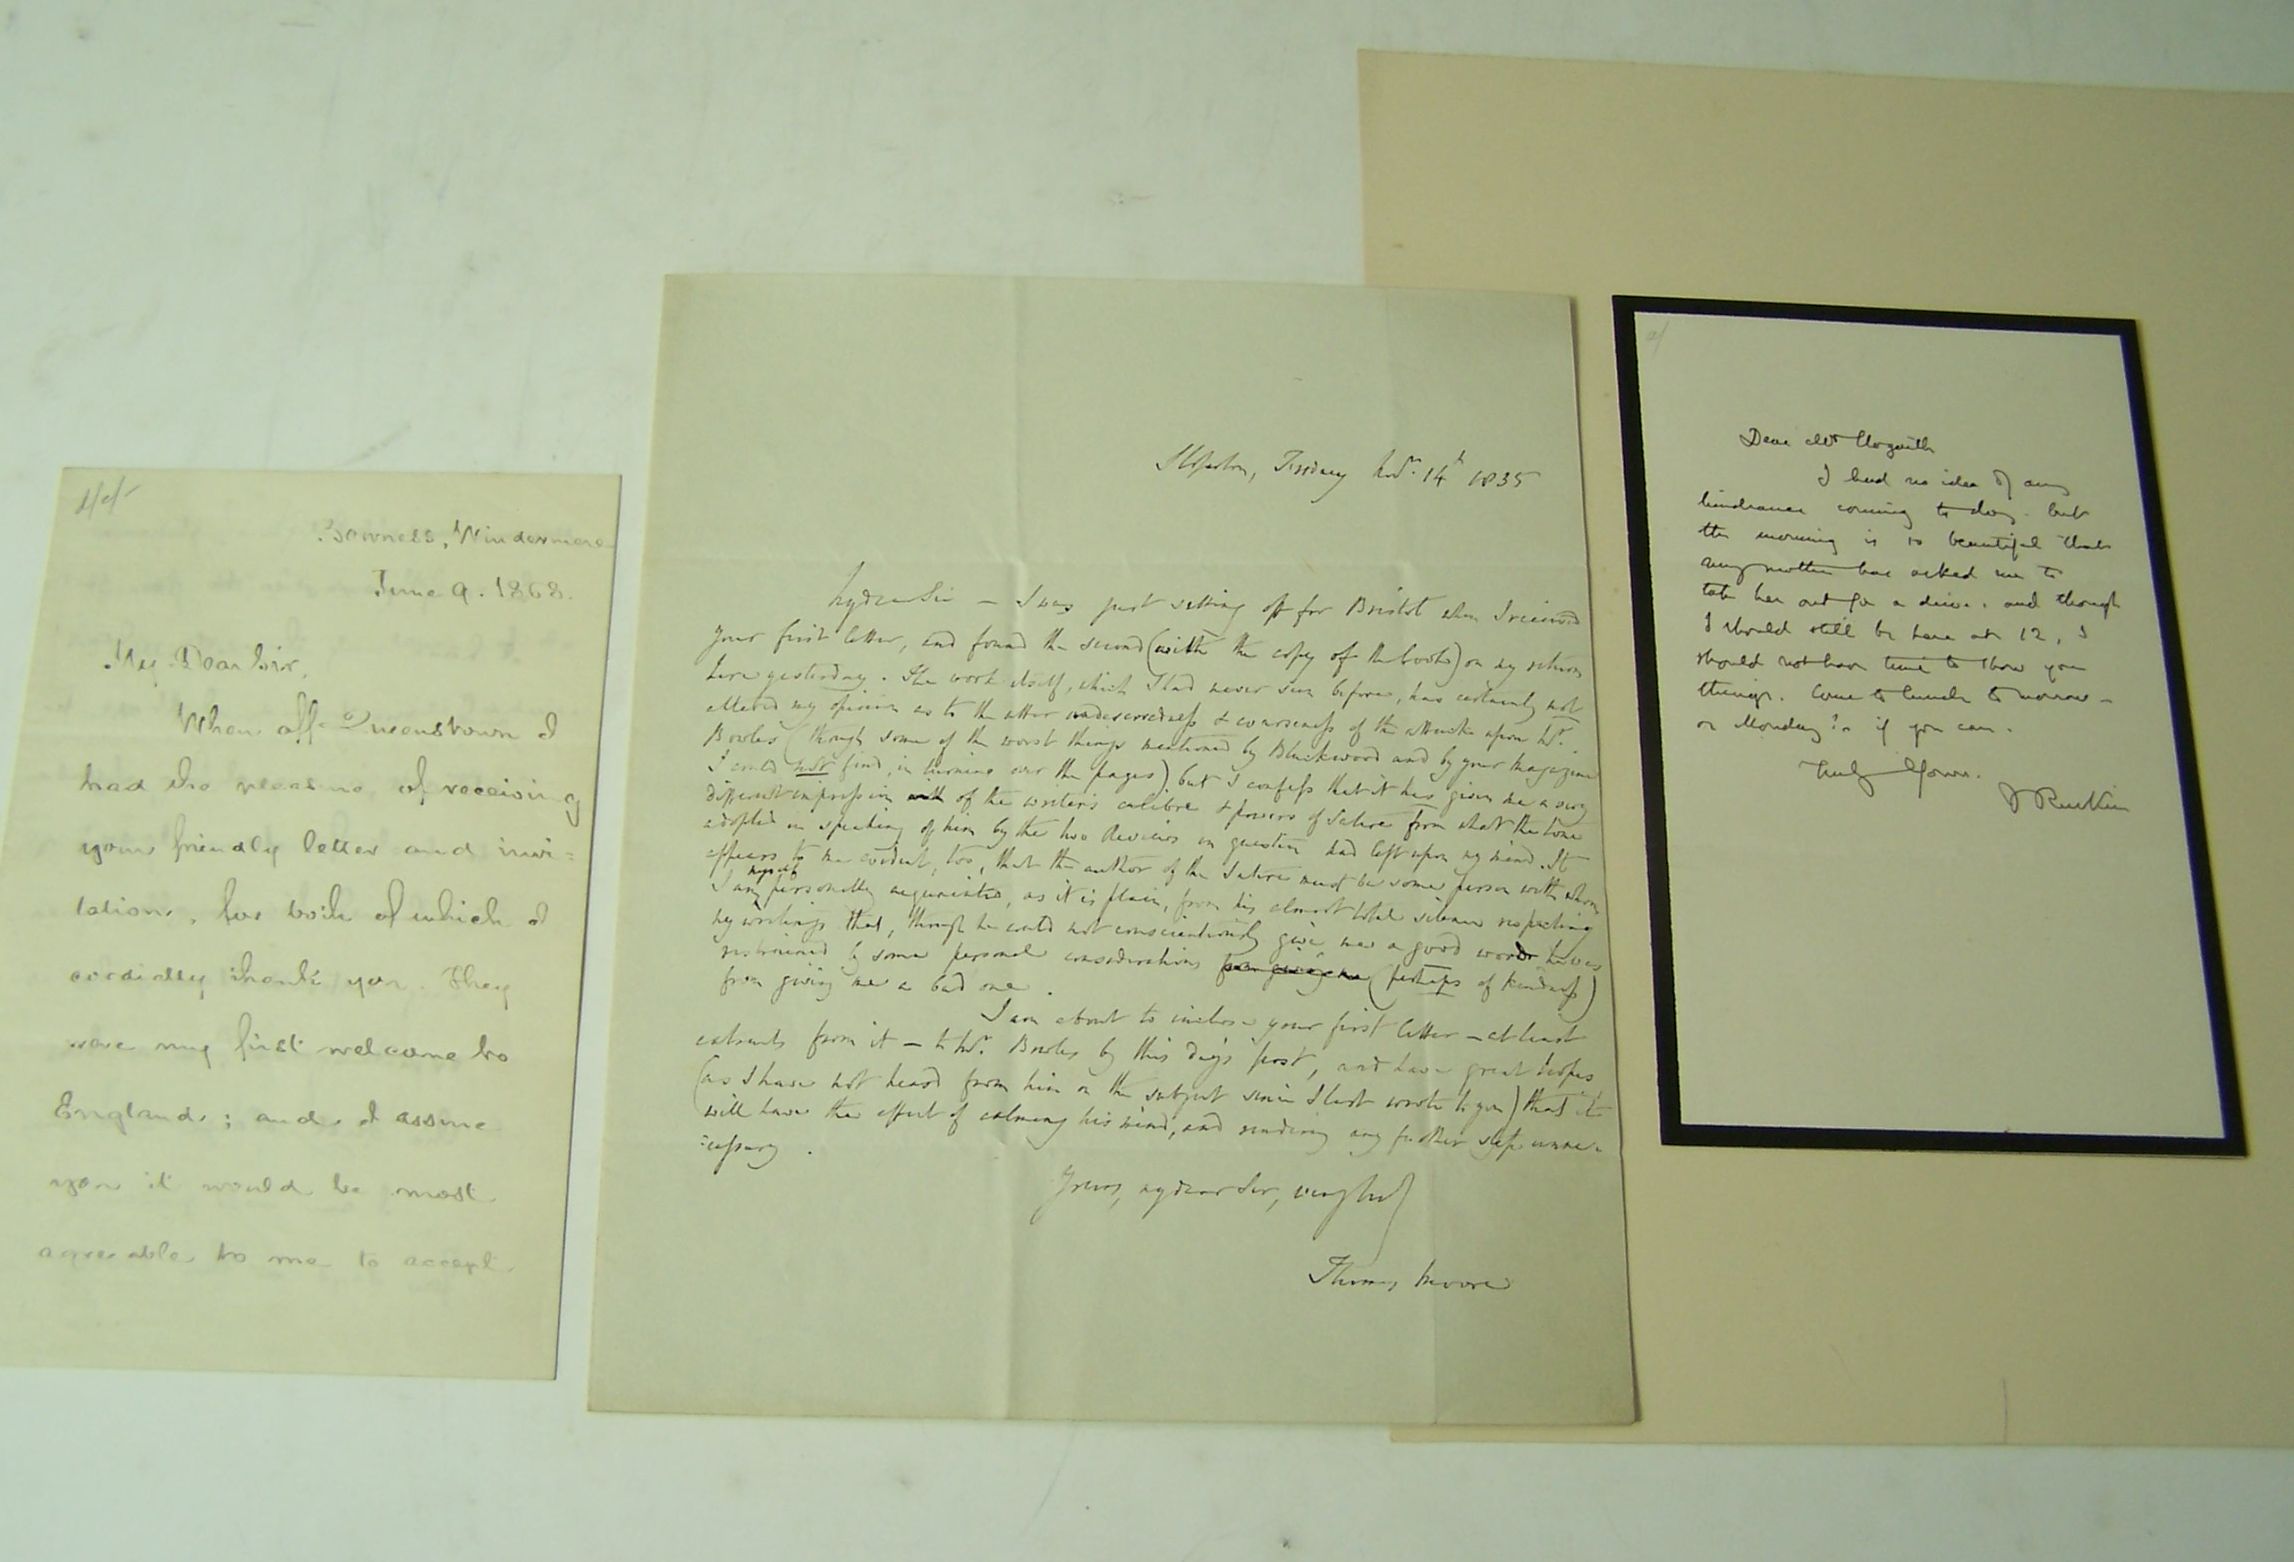 Bowness, Windermere
June 9. 1868.
My Dear Sir,
When off Queenstown I
had the pleasure of receiving
your friendly letter and invi=
tation, for both of which I
cordially thank you. They
were my first welcome to
England; and I assure
you it would be most
agreeable to me to accept
Sloperton, Tuesday Novr. 14th 1835
My dear Sir — I was just setting off for Bristol when I received
your first letter, and found the second (with the copy of the book) on my return
here yesterday. The work itself, which I had never seen before, has certainly not
altered my opinion as to the utter undeservedness & coarseness of the attack upon Mr.
Bowles (though some of the worst things mentioned by Blackwood and by your Magazine
I could not find, in turning over the pages) but I confess that it has given me a very
different impression of the writer's calibre & powers of Satire from what the tone
adopted in speaking of him by the two Reviews in question had left upon my mind. It
appears to me evident, too, that the author of the Satire must be some person with whom
I am myself personally acquainted, as it is plain, from his almost total silence respecting
my writings that, though he could not conscientiously give me a good word he was
restrained by some personal considerations from giving me (perhaps of kindness)
from giving me a bad one.
I am about to inclose your first letter — at least
extracts from it — to Mr. Bowles by this day's post, and have great hopes
(as I have not heard from him on the subject since I last wrote to you) that it
will have the effect of calming his mind, and rendering any further step unne-
:cessary.
Yours, my dear Sir, very truly
Thomas Moore
Dear Mr Hogarth
I had no idea of any
hindrance coming to day. but
the morning is so beautiful that
my mother has asked me to
take her out for a drive. and though
I should still be here at 12, I
should not have time to show you
things. Come to lunch to morrow –
or Monday? if you can.
Truly Yours.
J Ruskin